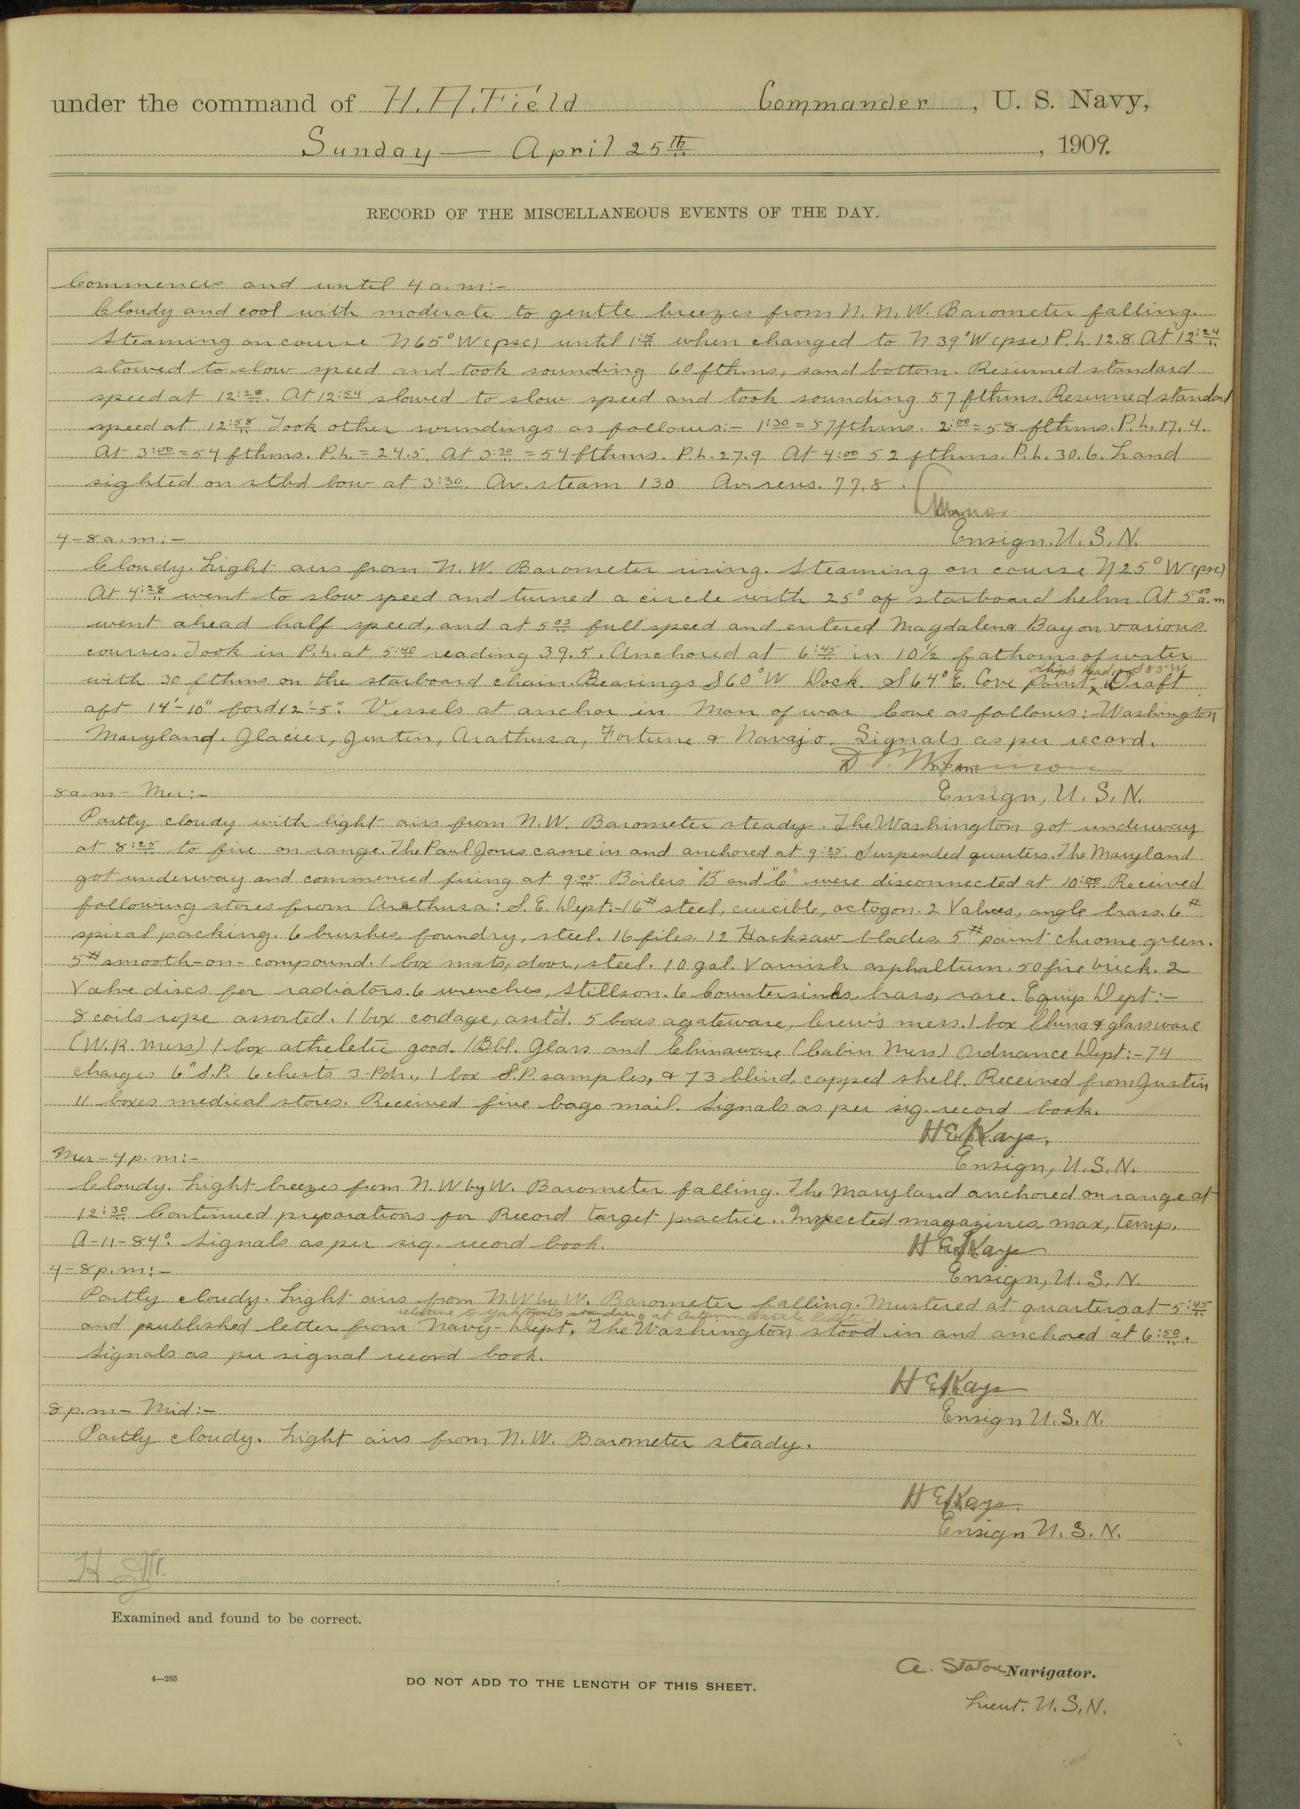 under the command of H. A. Field Commander, U. S. Navy,
Sunday — April 25th, 1909.
RECORD OF THE MISCELLANEOUS EVENTS OF THE DAY.
Commences and until 4 a.m:-
Cloudy and cool with moderate to gentle breezes from N. N. W. Barometer falling.
Steaming on course N 65° W (psc) until 1:15 when changed to N 39° W (psc) P.L. 12.8. At 12:24
slowed to slow speed and took sounding 60 fthms, sand bottom. Resumed standard
speed at 12:28. At 12:54 slowed to slow speed and took sounding 57 fthms. Resumed standard
speed at 12:58 Took other soundings as follows:- 1:30 = 57 fthms. 2:00 = 58 fthms. P.L. 17.4.
At 3:00 = 54 fthms. P.L. = 24.5. At 3:30 = 54 fthms. P.L. 27.9 At 4:00 52 fthms. P.L. 30.6. Land
sighted on stbd bow at 3:30. Av. steam 130 Av. revs. 77.8.
Ensign. U. S. N.
4-8 a.m:-
Cloudy. Light airs from N. W. Barometer rising. Steaming on course N 25° W (psc)
At 4:28 went to slow speed and turned a circle with 25° of starboard helm. At 5:00 a.m
went ahead half speed, and at 5:03 full speed and entered Magdalena Bay on various
courses. Took in P.L. at 5:40 reading 39.5. Anchored at 6:45 in 10½ fathoms of water
ships head S 85° W
with 30 fthms on the starboard chain. Bearings S 60° W Dock. S 64° E. Cove point, Draft
aft 14'-10" for'd 12'-5". Vessels at anchor in Man of war Cove as follows: Washington
Maryland, Glacier, Justin, Arathusa, Fortune & Navajo. Signals as per record.
Ensign, U. S. N.
8 a.m - Mer:-
Partly cloudy with light airs from N.W. Barometer steady. The Washington got underway
at 8:25 to fire on range. The Paul Jones came in and anchored at 9:25. Suspended quarters. The Maryland
got underway and commenced firing at 9:05 Boilers "B" and "C" were disconnected at 10:00. Received
following stores from Arathusa: S. E. Dept.- 16# steel, crucible, octogon. 2 Valves, angle brass. 6#
spiral packing. 6 brushes, foundry, steel. 16 files. 12 Hacksaw blades 5# paint chrome green.
5# smooth-on-compound. 1 box mats, door, steel. 10 gal. Varnish asphaltum. 50 fire brick. 2
Valve discs for radiators. 6 wrenches, Stillson. 6 Countersinks, brass, rose. Equip Dept:-
8 coils rope assorted. 1 box cordage, ast'd. 5 boxes agateware, Crew's mess. 1 box China & glassware
(W.R. Mess) 1 box atheletic good. 1 Bbl. Glass and Chinaware (Cabin Mess) Ordnance Dept:- 74
charges 6" S.P. 6 chests 3-Pdr., 1 box S.P. samples, & 73 blind, capped shell. Received from Justin
11 boxes medical stores. Received five bags mail. Signals as per sig. record book.
H E Kays,
Ensign, U. S. N.
Mer - 4 p.m:-
Cloudy. Light breezes from N. W by W. Barometer falling. The Maryland anchored on range at
12:30 Continued preparations for Record target practice. Inspected magazines max, temp,
A-11-84°. Signals as per sig. record book.
H E Kays
4-8 p.m:-
Ensign, U. S. N.
Partly cloudy. Light airs from N.W by W. Barometer falling. Mustered at quarters at 5:45
relative to at Battle
and published letter from Navy Dept. The Washington stood in and anchored at 6:50.
Signals as per signal record book.
H E Kays
8 p.m - Mid:-
Ensign U. S. N.
Partly cloudy. Light airs from N. W. Barometer steady.
H E Kays.
Ensign U. S. N.
Examined and found to be correct.
A. Staton Navigator.
4—265
DO NOT ADD TO THE LENGTH OF THIS SHEET.
Lieut. U. S. N.